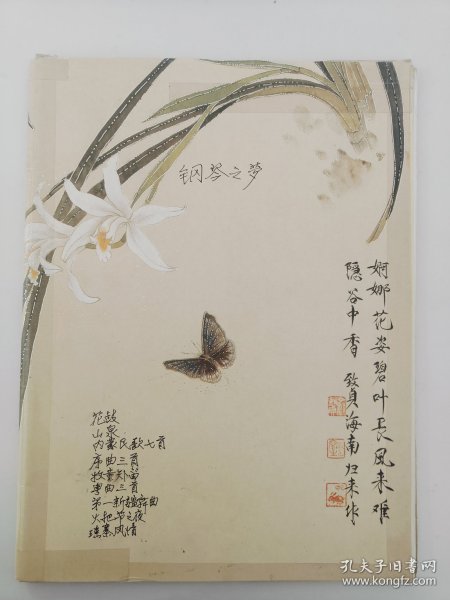 钢琴之梦
婀娜花姿碧叶长风来难
隐谷中香 致贞海南归来作
花鼓
山泉
内蒙民歌七首
序曲三首
牧童短笛
第一新疆舞曲
火把节之夜
瑶寨风情
孔夫子旧书网
www.kongfz.com